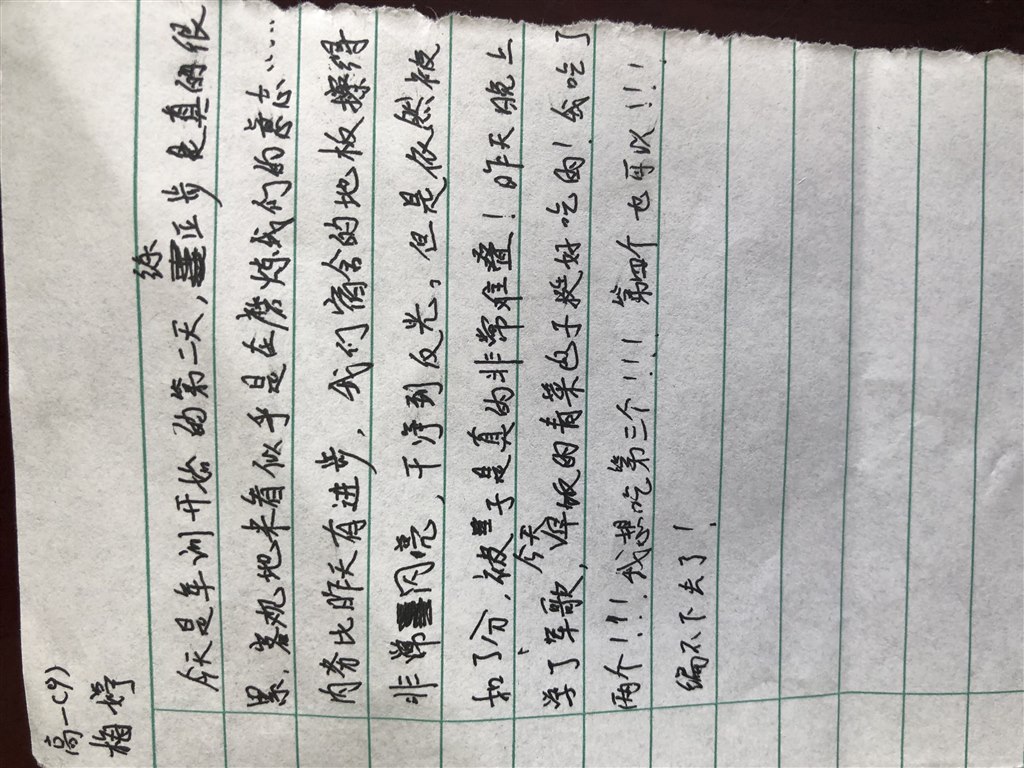 高一(9)
梅婷
今天是军训开始的第二天,练正步是真的很
累,客观地来看似乎是在磨炼我们的意志……
内务比昨天有进步,我们宿舍的地板擦得
非常闪亮,干净到反光。但是依然被
扣了1分,被子是真的非常难叠!昨天晚上
学了军歌,今天早饭的青菜包子挺好吃的!我吃了
两个!!!我想吃第三个!!!第四个也可以!!!
编不下去了!